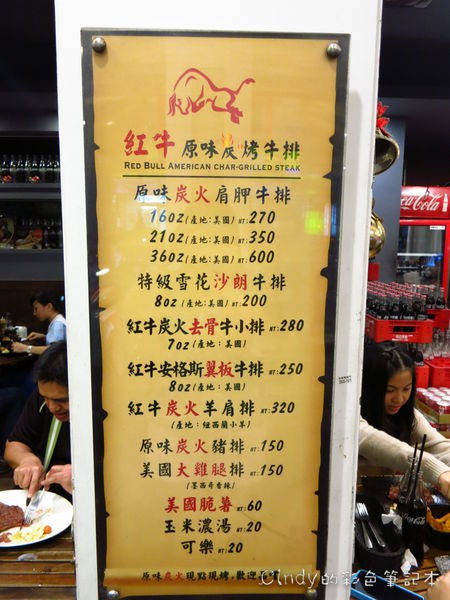 紅牛 原味炭烤牛排
RED BULL AMERICAN CHAR-GRILLED STEAK
原味炭火肩胛牛排
16OZ(產地:美國)NT:270
21OZ(產地:美國)NT:350
36OZ(產地:美國)NT:600
特級雪花沙朗牛排
8OZ(產地:美國)NT:200
紅牛炭火去骨牛小排 NT:280
7OZ(產地:美國)
紅牛安格斯翼板牛排 NT:250
8OZ(產地:美國)
紅牛炭火羊肩排 NT:320
(產地:紐西蘭小羊)
原味炭火豬排 NT:150
美國大雞腿排 NT:150
(墨西哥香辣)
美國脆薯 NT:60
玉米濃湯 NT:20
可樂 NT:20
原味炭火現點現烤,歡迎
Cindy的彩色筆記本
Coca-Cola